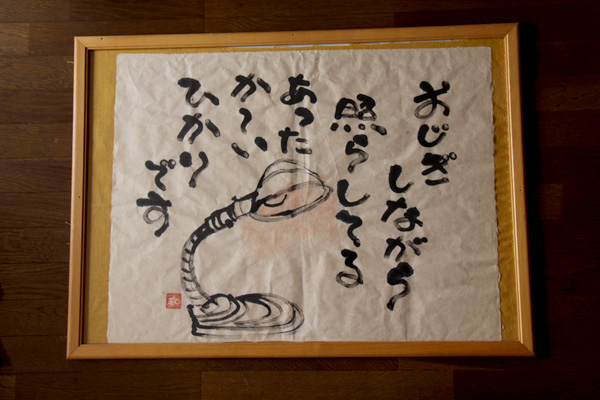 おじぎ
しながら
照らしてる
あった
か〜い
ひかり
です
和